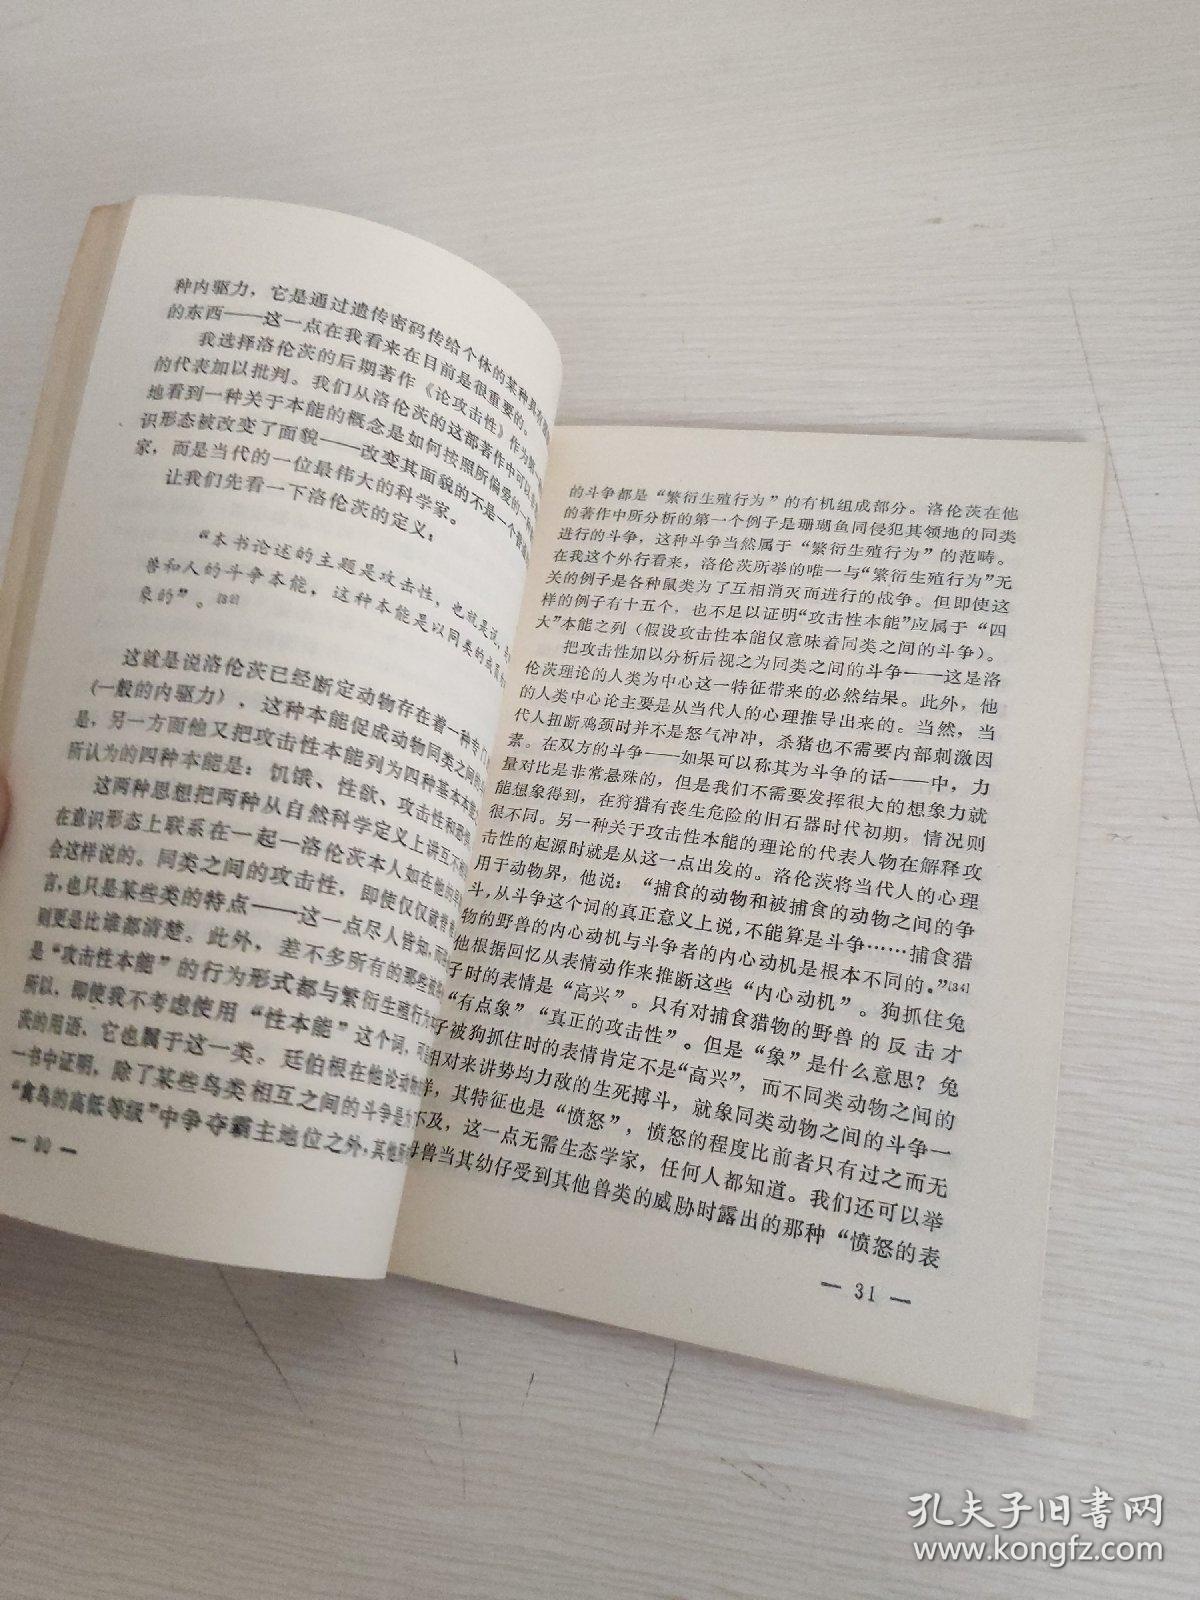 种内驱力，它是通过遗传密码传给个体的某种具有
的东西——这一点在我看来在目前是很重要的。
我选择洛伦茨的后期著作《论攻击性》作为第一
的代表加以批判。我们从洛伦茨的这部著作中可以
地看到一种关于本能的概念是如何按照所偏爱的一种
识形态被改变了面貌——改变其面貌的不是一个普通
家，而是当代的一位最伟大的科学家。
让我们先看一下洛伦茨的定义：
“本书论述的主题是攻击性，也就是说，
兽和人的斗争本能，这种本能是以同类的成员
象的”。
这就是说洛伦茨已经断定动物存在着一种专门
(一般的内驱力)，这种本能促成动物同类之间的
是，另一方面他又把攻击性本能列为四种基本本能
所认为的四种本能是：饥饿、性欲、攻击性和恐惧
这两种思想把两种从自然科学定义上讲互不相
在意识形态上联系在一起—洛伦茨本人如在他的早
会这样说的。同类之间的攻击性，即使仅仅就脊椎
言，也只是某些类的特点——这一点尽人皆知，而
则更是比谁都清楚。此外，差不多所有的那些被
是“攻击性本能”的行为形式都与繁衍生殖行为
所以，即使我不考虑使用“性本能”这个词，可
茨的用语，它也属于这一类。廷伯根在他论动物
一书中证明，除了某些鸟类相互之间的斗争是为
“禽鸟的高低等级”中争夺霸主地位之外，其他所
— 30 —
的斗争都是“繁衍生殖行为”的有机组成部分。洛伦茨在他
的著作中所分析的第一个例子是珊瑚鱼同侵犯其领地的同类
进行的斗争，这种斗争当然属于“繁衍生殖行为”的范畴。
在我这个外行看来，洛伦茨所举的唯一与“繁衍生殖行为”无
关的例子是各种鼠类为了互相消灭而进行的战争。但即使这
样的例子有十五个，也不足以证明“攻击性本能”应属于“四
大”本能之列（假设攻击性本能仅意味着同类之间的斗争）。
把攻击性加以分析后视之为同类之间的斗争——这是洛
伦茨理论的人类为中心这一特征带来的必然结果。此外，他
的人类中心论主要是从当代人的心理推导出来的。当然，当
代人扭断鸡颈时并不是怒气冲冲，杀猪也不需要内部刺激因
素。在双方的斗争——如果可以称其为斗争的话——中，力
量对比是非常悬殊的，但是我们不需要发挥很大的想象力就
能想象得到，在狩猎有丧生危险的旧石器时代初期，情况则
很不同。另一种关于攻击性本能的理论的代表人物在解释攻
击性的起源时就是从这一点出发的。洛伦茨将当代人的心理
用于动物界，他说：“捕食的动物和被捕食的动物之间的争
斗，从斗争这个词的真正意义上说，不能算是斗争……捕食猎
物的野兽的内心动机与斗争者的内心动机是根本不同的。”[34]
他根据回忆从表情动作来推断这些“内心动机”。狗抓住兔
子时的表情是“高兴”。只有对捕食猎物的野兽的反击才
“有点象”“真正的攻击性”。但是“象”是什么意思？兔
子被狗抓住时的表情肯定不是“高兴”，而不同类动物之间的
相对来讲势均力敌的生死搏斗，就象同类动物之间的斗争一
样，其特征也是“愤怒”，愤怒的程度比前者只有过之而无
不及，这一点无需生态学家，任何人都知道。我们还可以举
母兽当其幼仔受到其他兽类的威胁时露出的那种“愤怒的表
— 31 —
孔夫子旧书网
www.kongfz.com